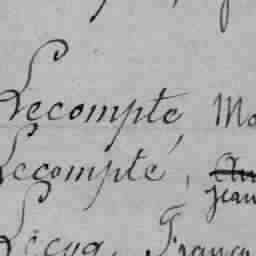 Lecompte, Ma
Lecompte, An
jean
Lecuq, Franço